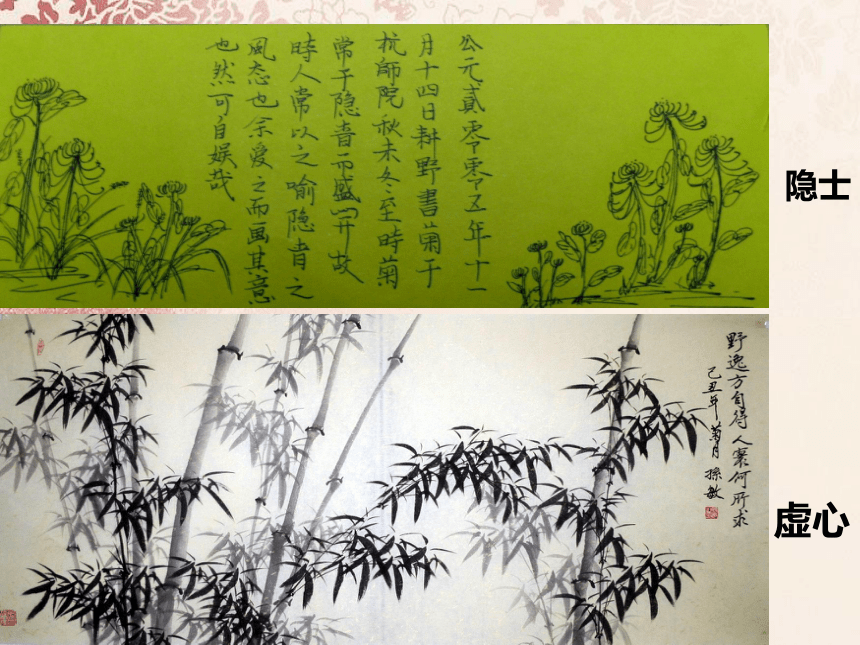 公元貳零零五年十一
月十四日耕野書菊于
杭師院秋末冬至時菊
常于隐者而盛開故
時人常以之喻隐者之
風态也余爱之而画其意
也然可自娱哉
隐士
野逸方自得人寰何所求
己丑年菊月孫敏
虚心